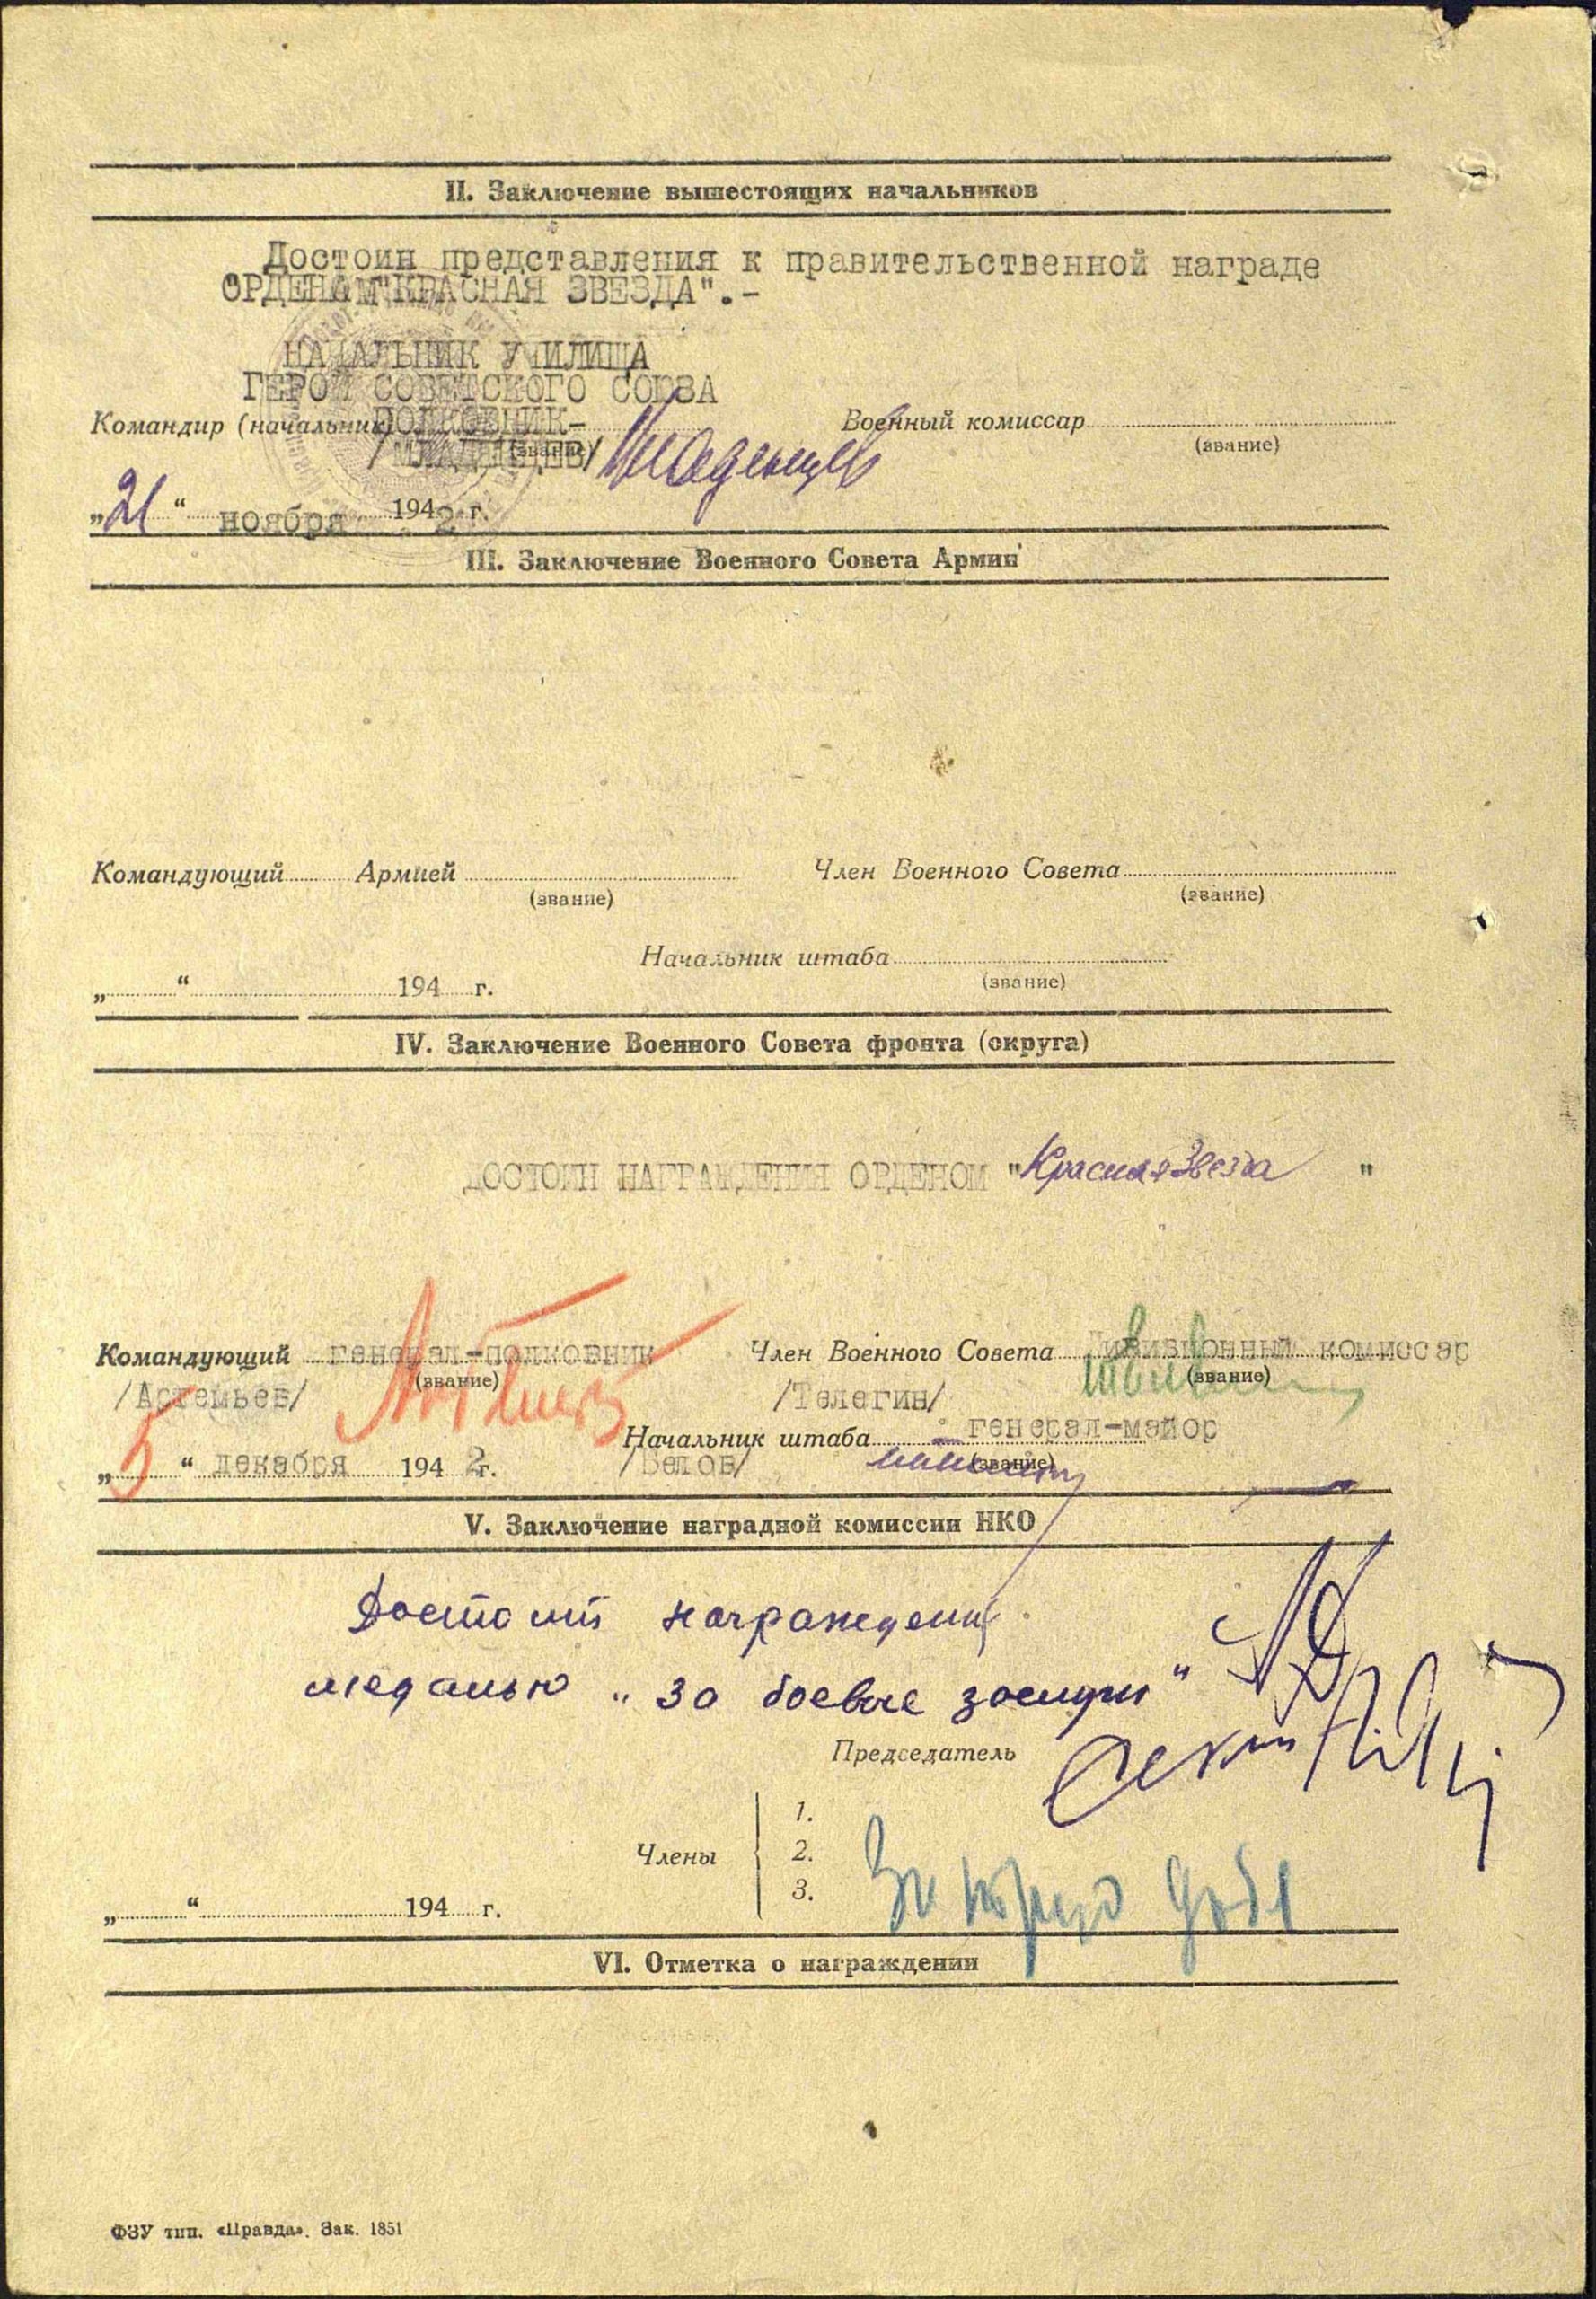 II. Заключение вышестоящих начальников
Достоин представления к правительственной награде
ОРДЕНАМ "КРАСНАЯ ЗВЕЗДА".-
НАЧАЛЬНИК УЧИЛИЩА
ГЕРОЙ СОВЕТСКОГО СОЮЗА
Командир (начальник) ПОЛКОВНИК- Военный комиссар
/МЛАДЕНЦЕВ/ (звание) Младенцев (звание)
„21" ноября 1942 г.
III. Заключение Военного Совета Армии
Командующий Армией Член Военного Совета
(звание) (звание)
Начальник штаба
„ " 194 г. (звание)
IV. Заключение Военного Совета фронта (округа)
ДОСТОИН НАГРАЖДЕНИЯ ОРДЕНОМ "Красная Звезда"
Командующий генерал-полковник Член Военного Совета Дивизионный комиссар
/Артемьев/ (звание) /Телегин/ (звание)
Начальник штаба генерал-майор
„5" декабря 1942 г. /Белов/ (звание)
V. Заключение наградной комиссии НКО
Достоин награждения
медалью „За боевые заслуги"
Председатель
1.
Члены 2.
3.
„ " 194 г.
VI. Отметка о награждении
ФЗУ тип. «Правда». Зак. 1851